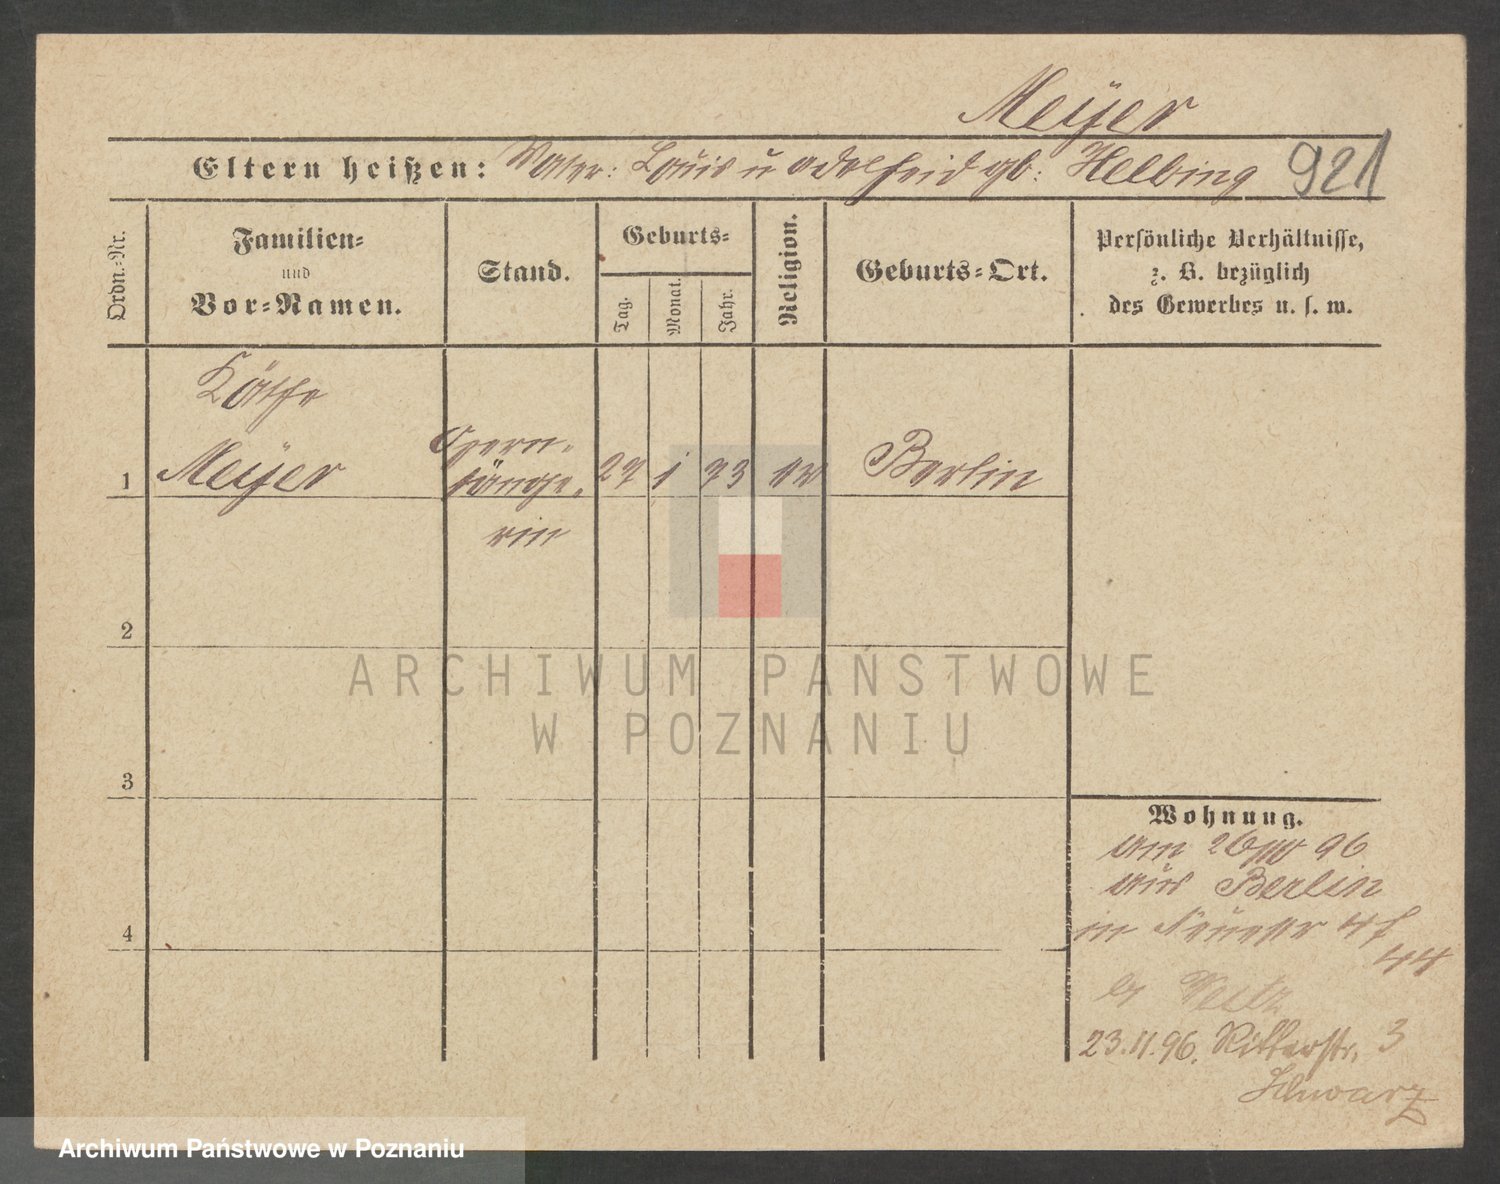 Meÿer
Eltern heißen: Vater: Louis u Adelheid gb: Helbing 921
Ordn.-Nr.
Familien-
und
Vor-Namen.
Stand.
Geburts-
Tag.
Monat.
Jahr.
Religion.
Geburts-Ort.
Persönliche Verhältnisse,
z. B. bezüglich
des Gewerbes u. s. w.
Käthe
1 Meÿer Opern- sänge- rin 27 1 73 Berlin
2
3
4
ARCHIWUM PAŃSTWOWE
W POZNANIU
Wohnung.
am 26 96
aus Berlin
in
44
23.11.96. Ritterstr. 3
Schwarz
Archiwum Państwowe w Poznaniu